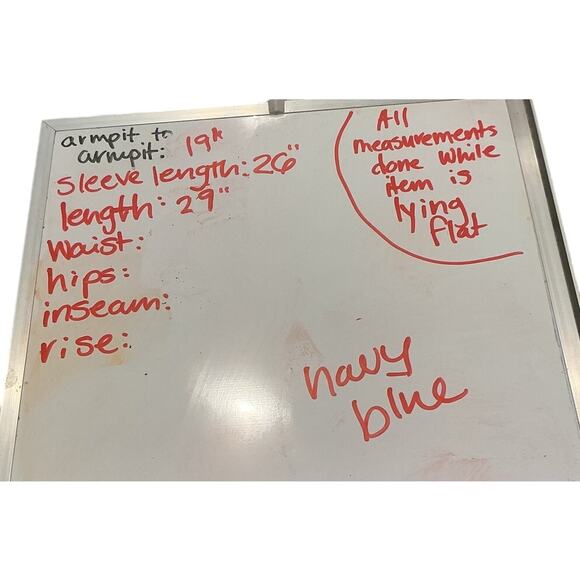 armpit to
armpit: 19"
sleeve length: 26"
length: 29"
Waist:
hips:
inseam:
rise:
All
measurements
done while
item is
lying
flat
navy
blue